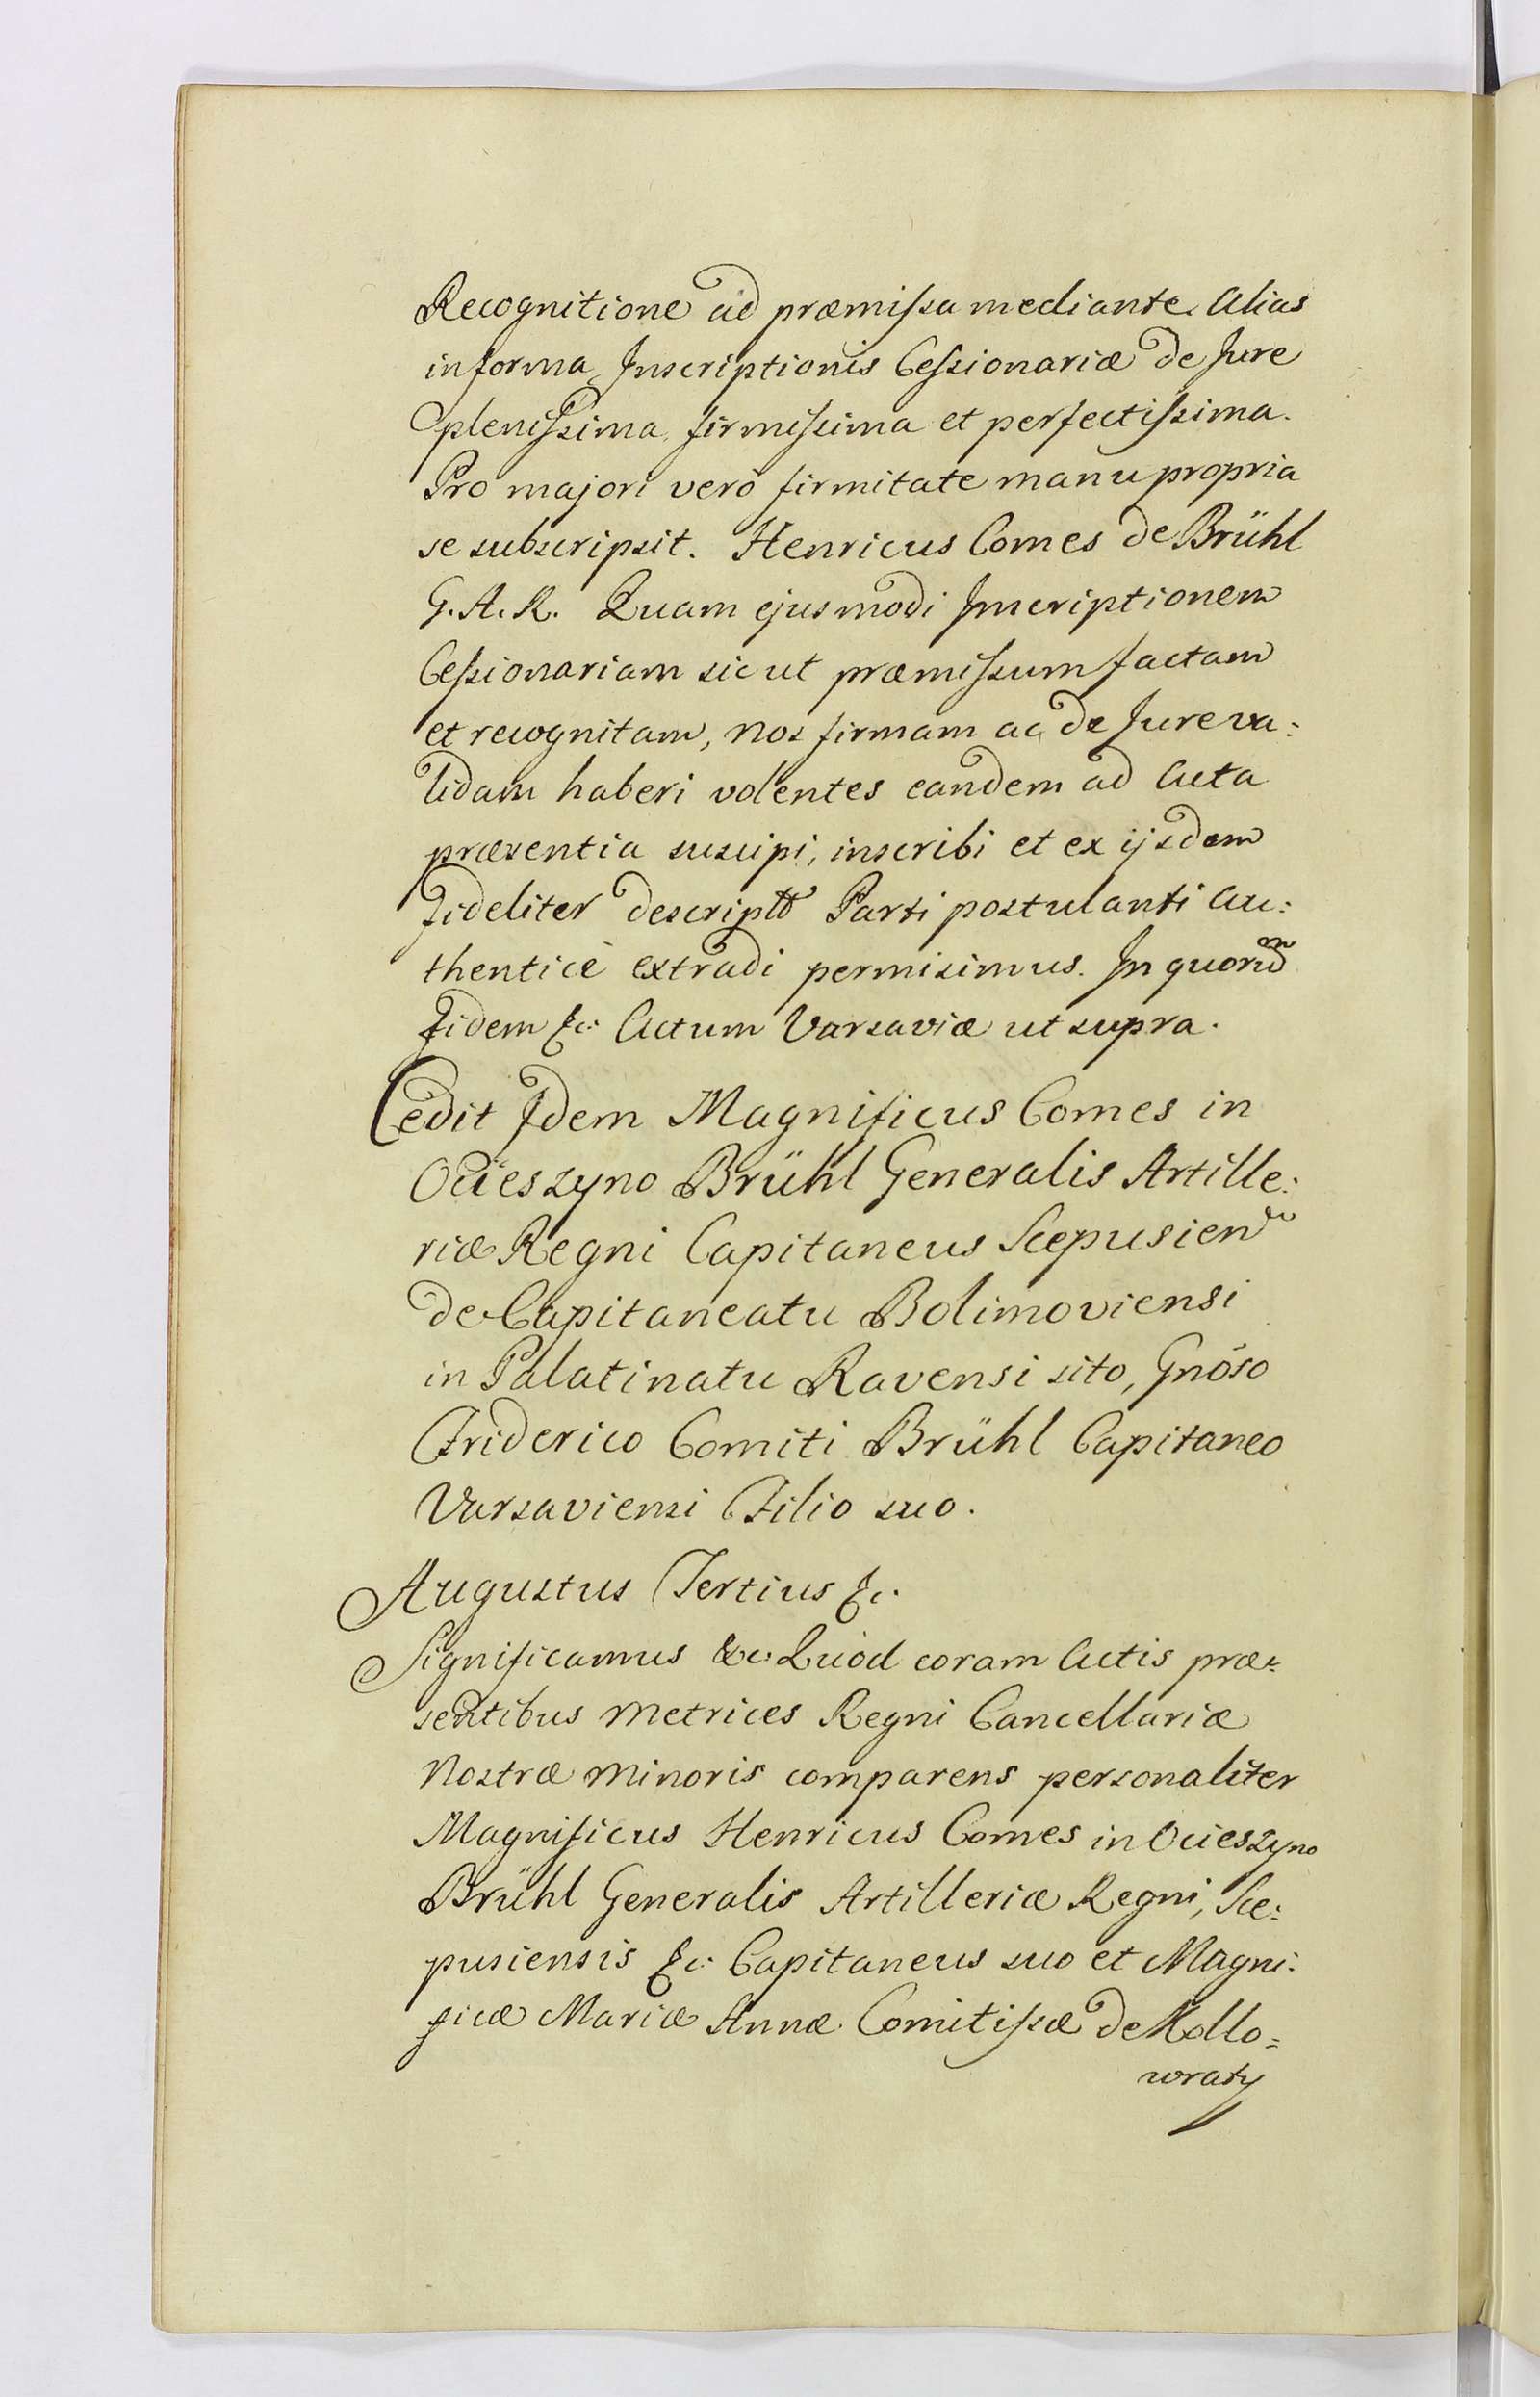 Recognitione ad præmissa mediante. Alias
in forma Inscriptionis Cessionariæ de Jure
plenissima, firmissima et perfectissima.
Pro majori verò firmitate manu propria
se subscripsit. Henricus Comes de Brühl
G. A. R. Quam ejusmodi Inscriptionem
Cessionariam sicut præmissum factam
et recognitam, Nos firmam ac de Jure va:
lidam haberi volentes eandem ad Acta
præsentia suscipi, inscribi et ex ijsdem
Fideliter descriptã Parti postulanti Au:
thenticè extradi permisimus. In quorũ
Fidem &c: Actum Varsaviæ ut supra.
Cedit Idem Magnificus Comes in
Ocieszyno Brühl Generalis Artille:
riæ Regni Capitaneus Scepusien
de Capitaneatu Bolimoviensi
in Palatinatu Ravensi sito, Gnõso
Friderico Comiti Brühl Capitaneo
Varsaviensi Filio suo.
Augustus Tertius &c.
Significamus &c: Quod coram Actis præ:
sentibus Metrices Regni Cancellariæ
Nostræ Minoris comparens personaliter
Magnificus Henricus Comes in Ocieszyno
Brühl Generalis Artilleriæ Regni, Sce:
pusiensis &c: Capitaneus suo et Magni:
ficæ Mariæ Annæ Comitissæ de Kollo=
wraty